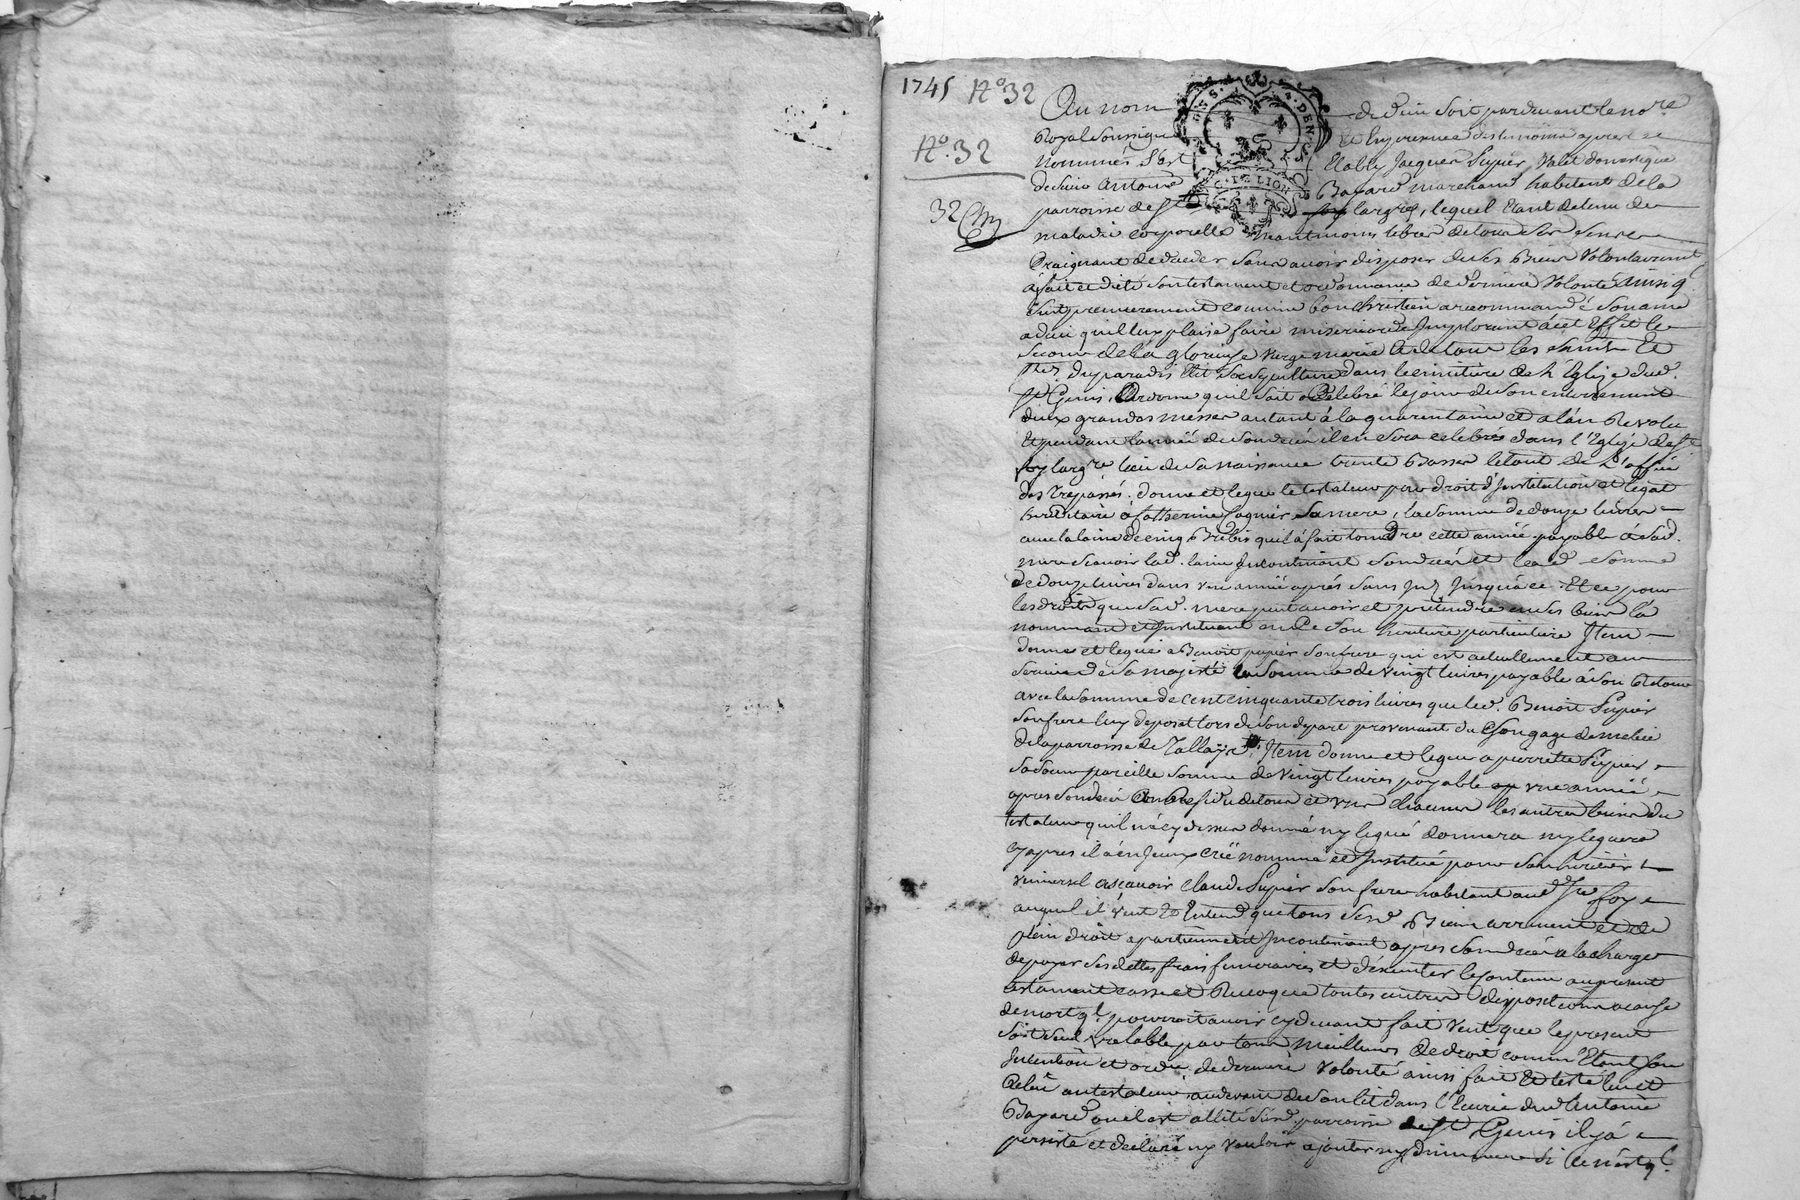 1745 N.º 32
N.º 32
32
Au nom de dieu soit pardevant le no.re
Royal soussigné Et En presence des temoins apres
nommés s'est Etably Jacques Supier valet domestique
de sieur Antoine Bayard marchand habitant de la
parroisse de S.t largre, lequel Etant detenu de
maladie corporelle neantmoins libre de tous ses sens
Craignant de deceder sans avoir disposer de ses Biens volontairemt
a fait et dicté son testament et ordonnance de derniere volonté Ainsi q
suit premierement comme bon chrestien a recommandé son ame
a dieu qu'il luy plaise faire misericorde Implorant a cet Effet le
secours de la glorieuse vierge marie Et de tous les saints Et
stes du paradis Elit sa sepulture dans le cimitiere de l'Eglise dud.
S.t Genis, Ordonne qu'il soit Celebré le jour de son enterrement
deux grandes messes autant a la quarantaine et a l'an Revolu
Et pendant l'année de son decés il en sera celebrés dans l'Eglise de S.t
largre lieu de sa naissance trente Basses le tout de l'office
des trepassés. donne et legue le testateur pour droit d'Institution et legat
hereditaire a Catherine sa mere, la somme de douze livres
avec la laine de cinq Brebis qu'il a fait tondre cette année payable a sad.
mere scavoir lad. laine Incontinant son decés et lad. somme
de douze livres dans une année apres sans Int. Jusqu'a ce. Et ce pour
les droits que sad. mere peut avoir et pretendre en ses biens la
nommant et Instituant en Ce son heritiere particuliere Item
donne et legue a Benoit Supier son frere qui est actuellement au
service de sa majesté la somme de vingt livres payable a son Retour
avec la somme de cent cinquante trois livres que led. Benoit Supier
son frere luy deposet lors de son depart provenant du Gongage de milice
de la parroisse de Item donne et legue a pierrette Supier
sa soeur pareille somme de vingt livres payable une année
apres son decés Et au Residu de tous et uns chacuns les autres biens du
testateur qu'il n'a cy dessus donné ny legué donnera ny leguera
cy apres il a en Iceux créé nommé et Institué pour son heritier
universel a scavoir Claude Supier son frere habitant aud. S.te foy
auquel il veut Et Entend que tous sesd. Biens arrivent et de
plein droit apartiennent Incontinant apres son decés a la charge
de payer ses dettes frais funeraires et d'executer le contenu au present
testament casse et Revoque toutes autres disposition a cause
de mort ql. pourroit avoir cy devant fait veut que le present
soit seul valable par tous meilleurs de droit comm'Etant son
Intention et ordre de derniere volonté ainsi fait Et testé leu et
Releu au testateur au devant de son lit dans l'Ecurie dud. Antoine
Bayard ou il est allité susd. parroisse de S.t Genis il y a
persisté et declaré ny vouloir ajouter ny diminuer si ce n'est q.l